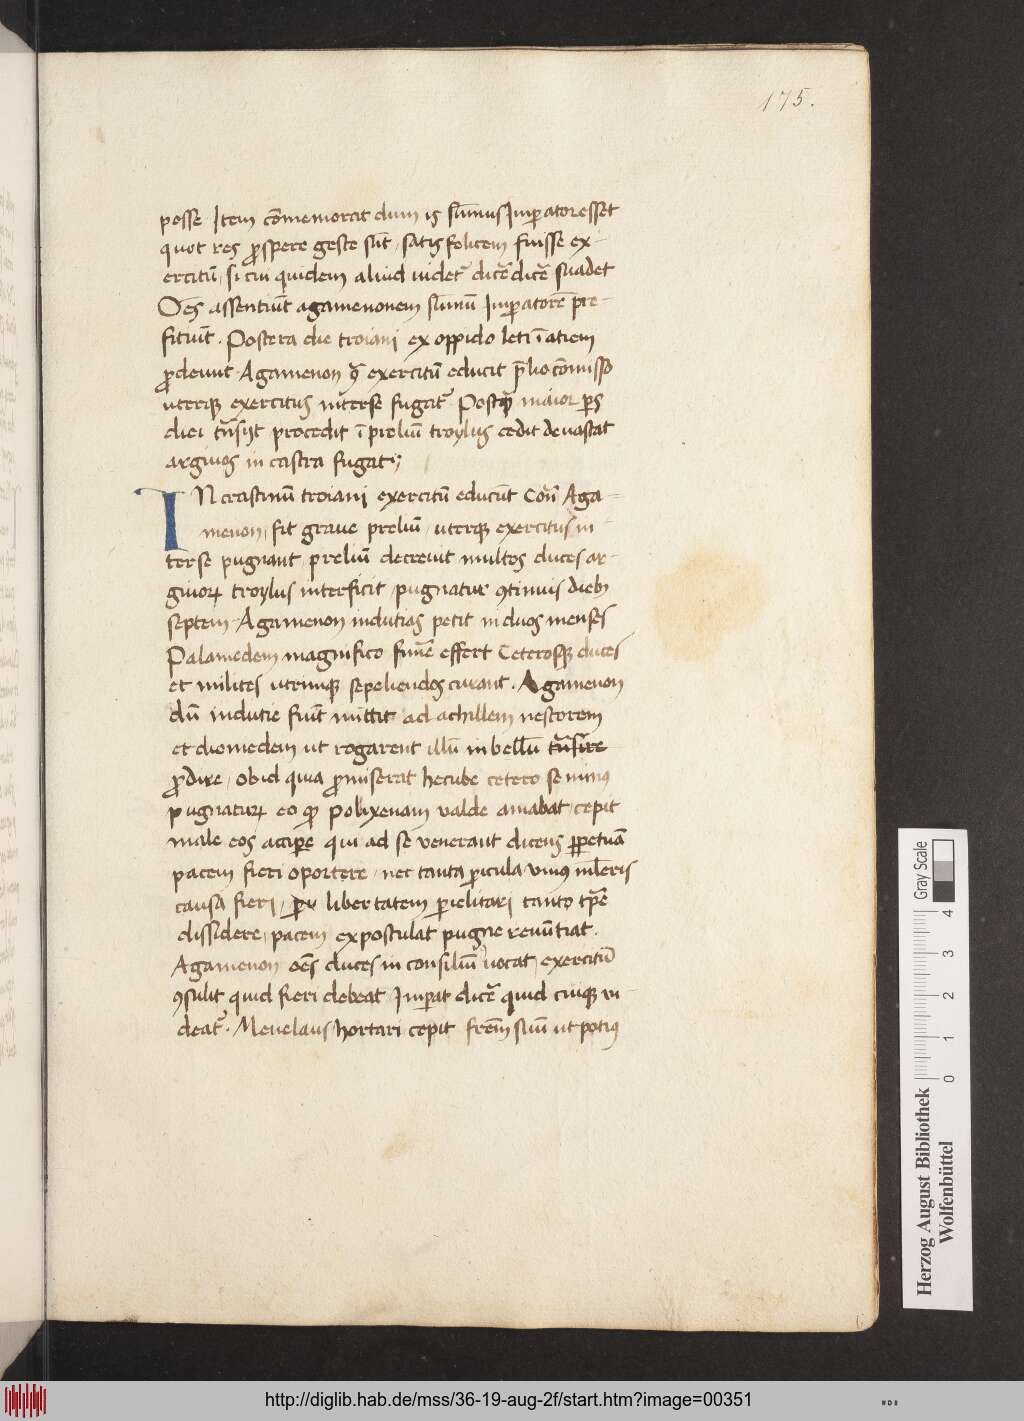 175.
posse Item cōmemorat dum is sūmus Imꝑator esset
quot res ꝓspere geste sūt / satis felicem fuisse ex-
ercitū / si cui quidem aliud uidet᷑ dicꝰē dicē suadet
Oēs assentiūt agamenonem sūmū Imꝑatorē pre-
fitiūt. Postera die troiani ex oppido leti ī atiem
ꝓdeunt. Agamenon 9ͣ exercitū educit p̄lio cōmisso
uterqꝫ exercitus int̄erse fugat᷑. Postꝙ̄ maior ꝑs
diei tn̄sijt procedit ī preliū troylus cedit deuastat
argiuos in castra fugat;
IN crastinū troiani exercitū educūt Con̄ Aga-
menon, fit graue preliū / uterqꝫ exercitus in-
terse pugnant / preliū decreuit multos duces ar-
giuoꝝ troylus interficit / pugnatur 9tinuis dieb9
septem. Agamenon indutias petit in duos menses
Palamedem magnifico funē effert Ceterosqꝫ duces
et milites utriusqꝫ sepeliendos curant. Agamenon
dū indutie fiūt mittit ad achillem nestorem
et diomedem ut rogarent illū in bellū tn̄sire
ꝓdire / ob id quia ꝓmiserat hecube cetero se minus
pugnaturꝝ eo ꝙ Polixenam valde amabat / cepit
male eos accipe qui ad se venerant dicens ꝑpetuā
pacem fieri oportere / nec tanta ꝑicula / unius ml̄eris
causa fieri / libertatem ꝑiclitari tanto tp̄re
dissidere / pacem expostulat pugne renūtiat.
Agamenon oēs duces in consiliū uocat / exercitū
9sulit quid fieri debeat / Imꝑat dicē quid cuiqꝫ ui-
deat᷑. Menelaus hortari cepit frēm suū ut potius
Gray Scale
0 1 2 3 4
Herzog August Bibliothek
Wolfenbüttel
http://diglib.hab.de/mss/36-19-aug-2f/start.htm?image=00351